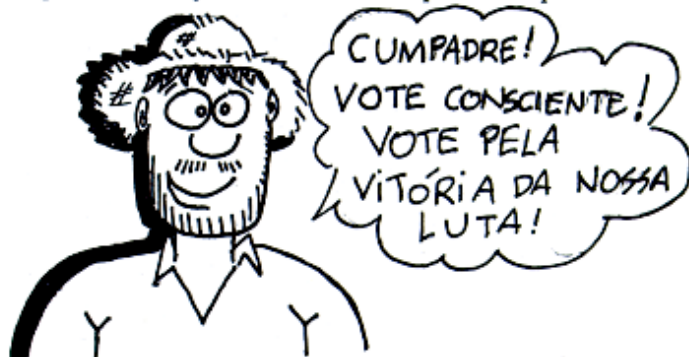 CUMPADRE!
VOTE CONSCIENTE!
VOTE PELA
VITÓRIA DA NOSSA
LUTA!